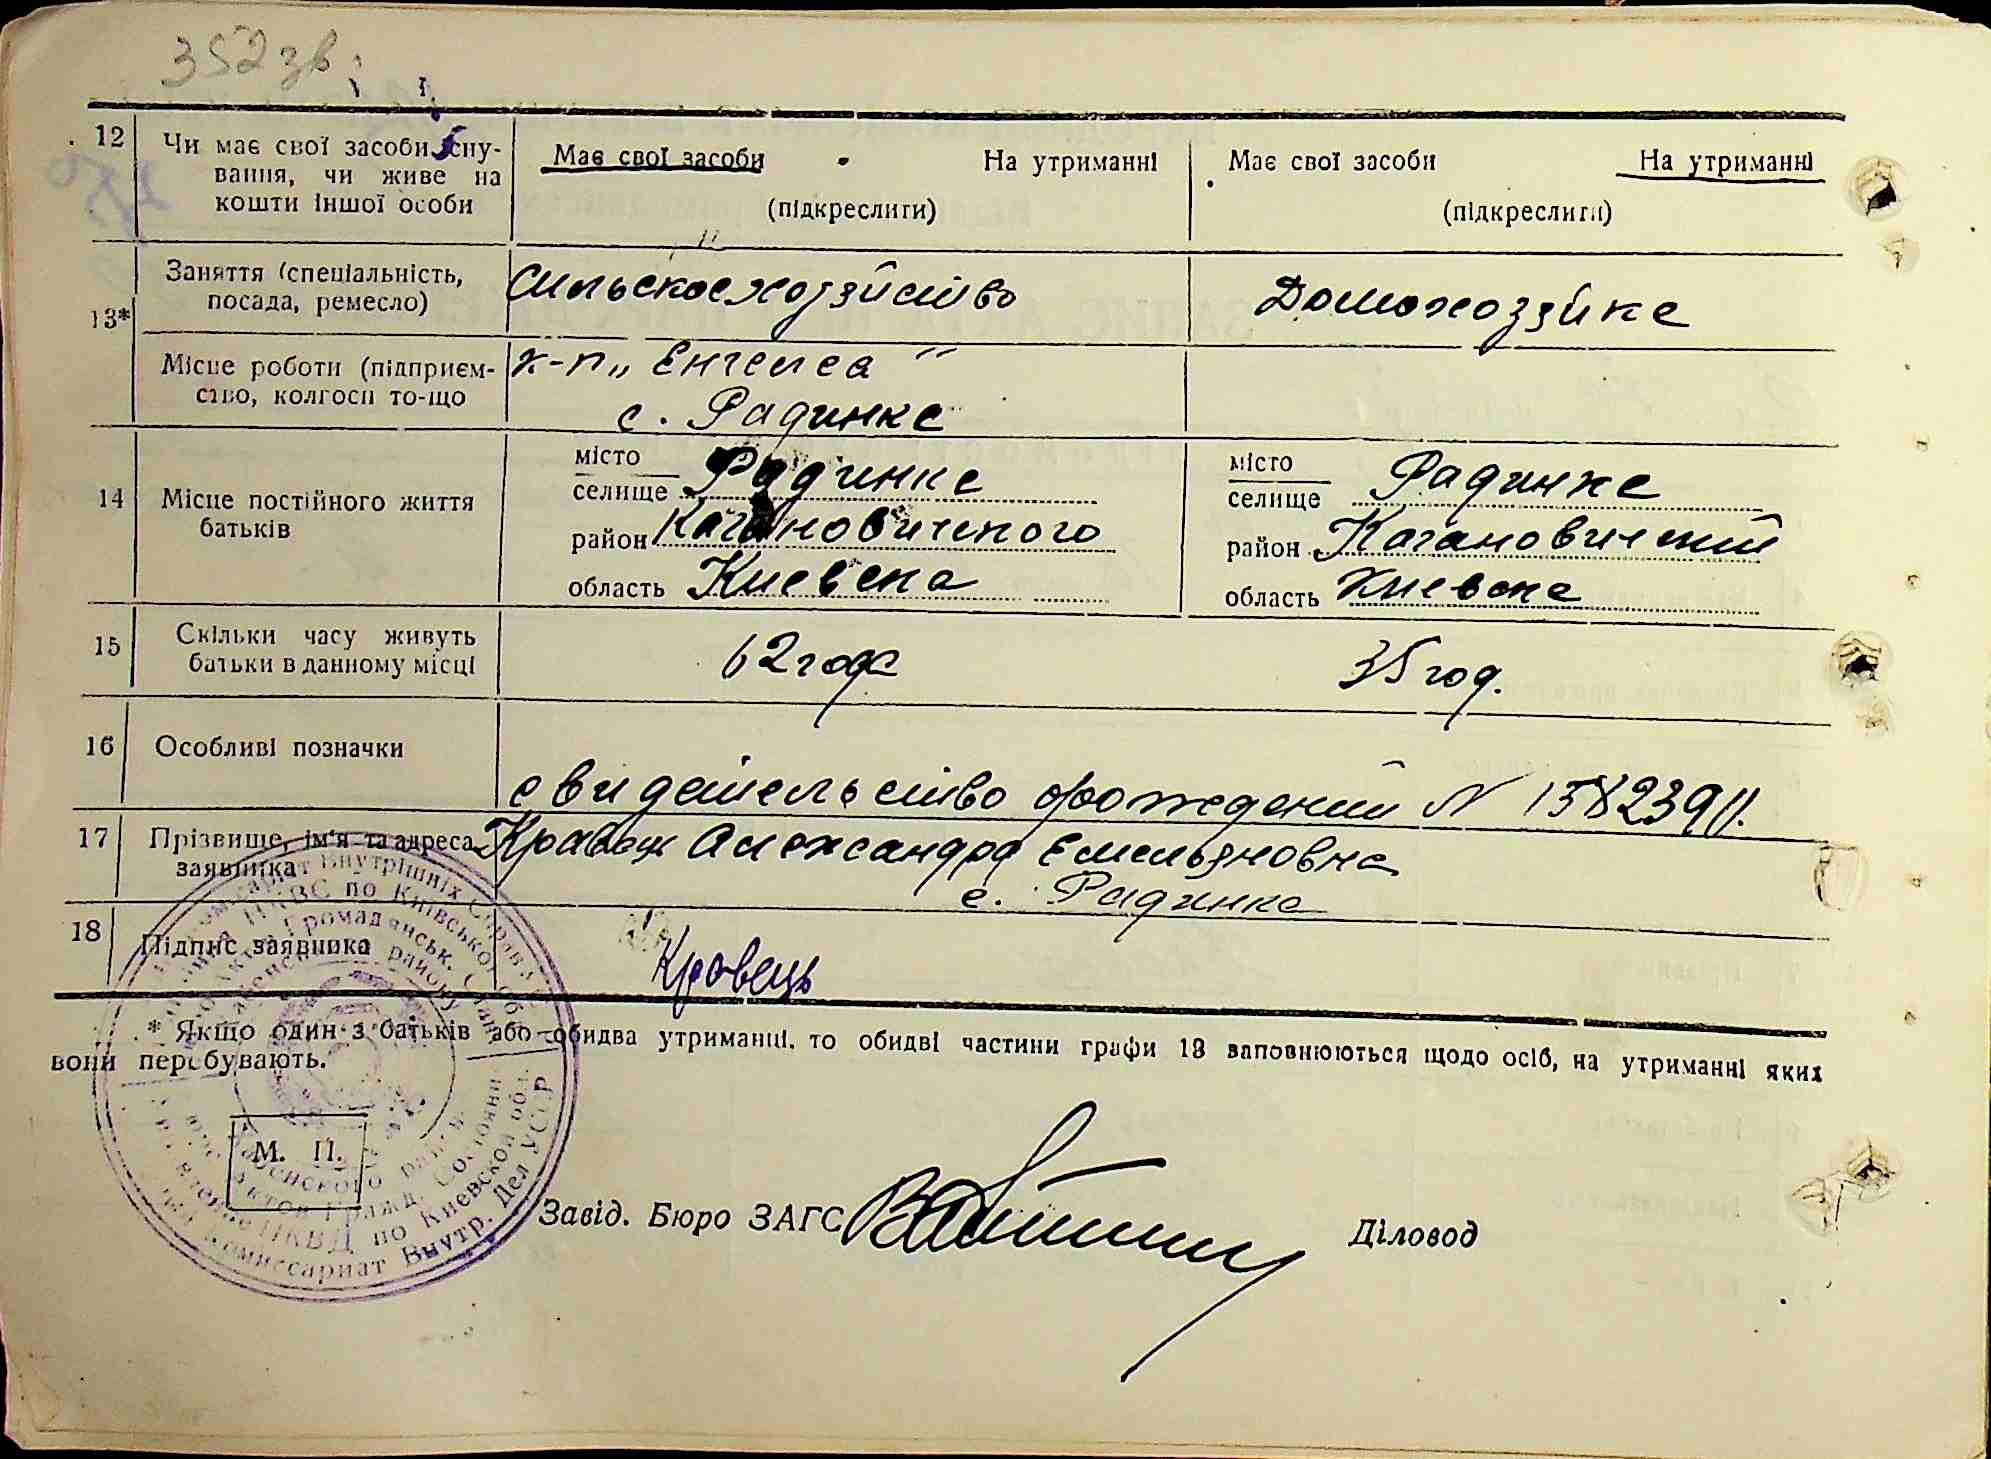 352зв.
12
Чи має свої засоби існу-
вання, чи живе на
кошти іншої особи
Має свої засоби На утриманні
(підкреслити)
Має свої засоби На утриманні
(підкреслити)
13*
Заняття (спеціальність,
посада, ремесло)
Сильскоехозяйство
Домохоззйке
Місце роботи (підприєм-
ство, колгосп то-що
к-п „Енгелса"
с. Радинке
14
Місце постійного життя
батьків
місто
селище Радинке
район Кагановичского
область Киевска
місто
селище Радинке
район Кагановичский
область Киевске
15
Скільки часу живуть
батьки в данному місці
62 года
35 год.
16
Особливі позначки
свидетельство орождении N 158239
17
Прізвище, ім'я та адреса
заявника
Кравец Александра Емельяновна
с. Радинка
18
Підпис заявника
Кровець
* Якщо один з батьків або обидва утриманці, то обидві частини графи 13 заповнюються щодо осіб, на утриманні яких
вони перебувають.
М. П.
Завід. Бюро ЗАГС
Діловод